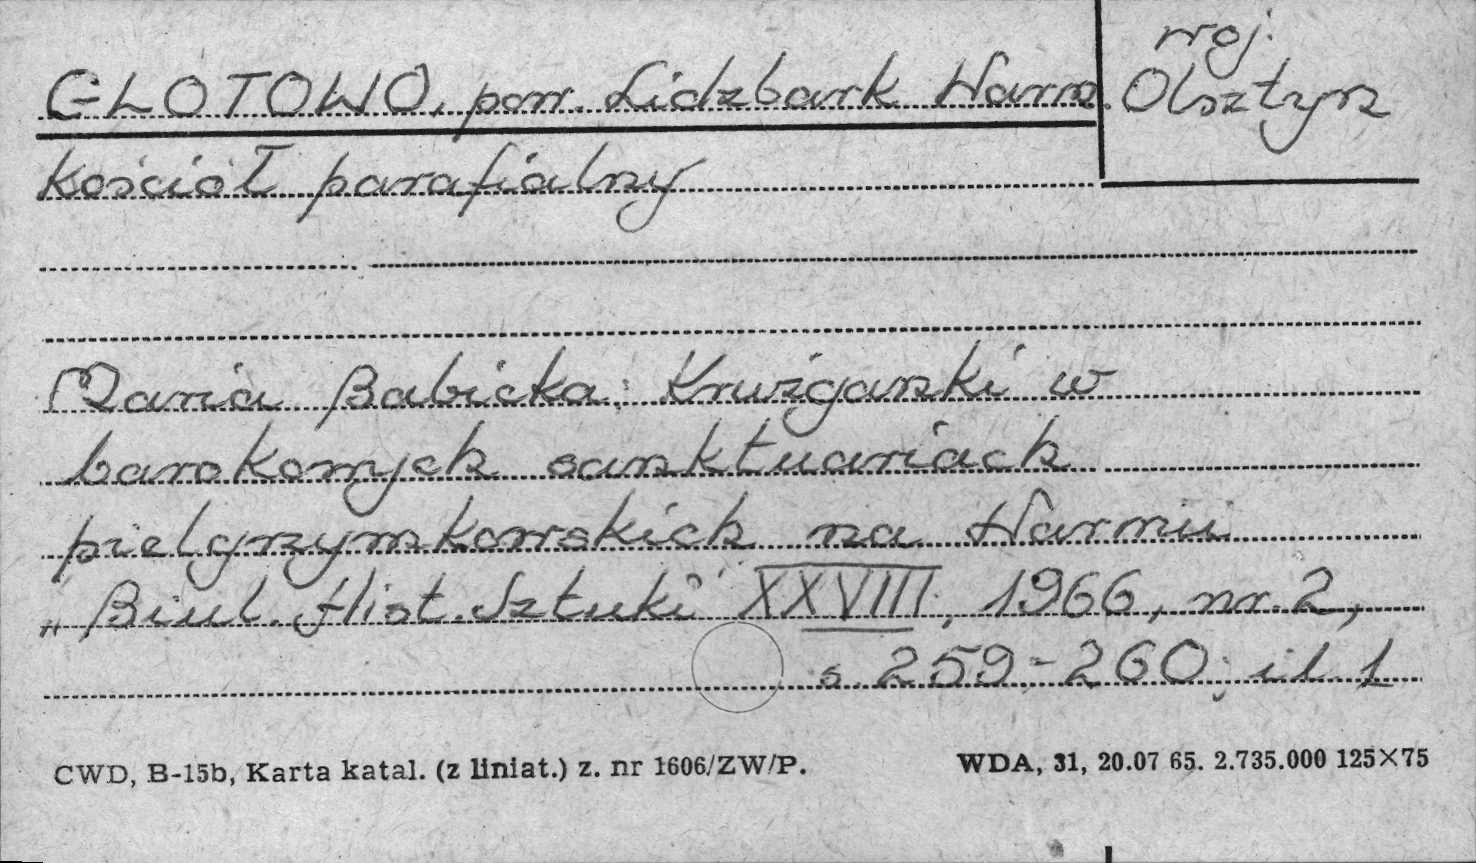 GŁOTOWO, pow. Lidzbark Warm.
woj.
Olsztyn
Kościół parafialny
Maria Babicka: Krużganki w
barokowych sanktuariach
pielgrzymkowskich na Warmii
„Biul. Hist. Sztuki" XXVIII, 1966, nr. 2,
s. 259-260; il. 1
CWD, B-15b, Karta katal. (z liniat.) z. nr 1606/ZW/P.
WDA, 31, 20.07 65. 2.735.000 125×75